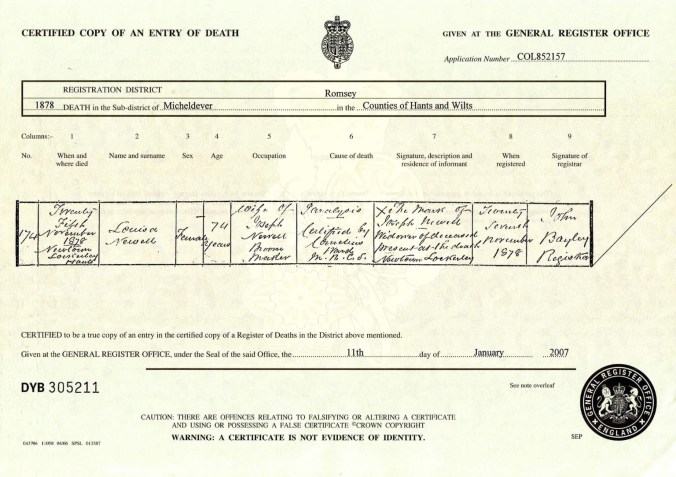 CERTIFIED COPY OF AN ENTRY OF DEATH
GIVEN AT THE GENERAL REGISTER OFFICE
Application Number COL852157
REGISTRATION DISTRICT Romsey
1878 DEATH in the Sub-district of Micheldever in the Counties of Hants and Wilts
Columns:- 1 2 3 4 5 6 7 8 9
No. When and where died Name and surname Sex Age Occupation Cause of death Signature, description and residence of informant When registered Signature of registrar
174
Twenty
Fifth
November
1878
Newtown
Lockerley
Louisa
Newell
Female
74
years
Wife of
Joseph
Newell
Broom
Maker
Paralysis
Certified by
Cornelius
M.R.C.S.
X The Mark of
Joseph Newell
Widower of deceased
Present at the death
Newtown Lockerley
Twenty
Seventh
November
1878
John
Bayley
Registrar
CERTIFIED to be a true copy of an entry in the certified copy of a Register of Deaths in the District above mentioned.
Given at the GENERAL REGISTER OFFICE, under the Seal of the said Office, the 11th day of January 2007
DYB 305211
See note overleaf
CAUTION: THERE ARE OFFENCES RELATING TO FALSIFYING OR ALTERING A CERTIFICATE
AND USING OR POSSESSING A FALSE CERTIFICATE ©CROWN COPYRIGHT
WARNING: A CERTIFICATE IS NOT EVIDENCE OF IDENTITY.
SEP
GENERAL REGISTER OFFICE
ENGLAND